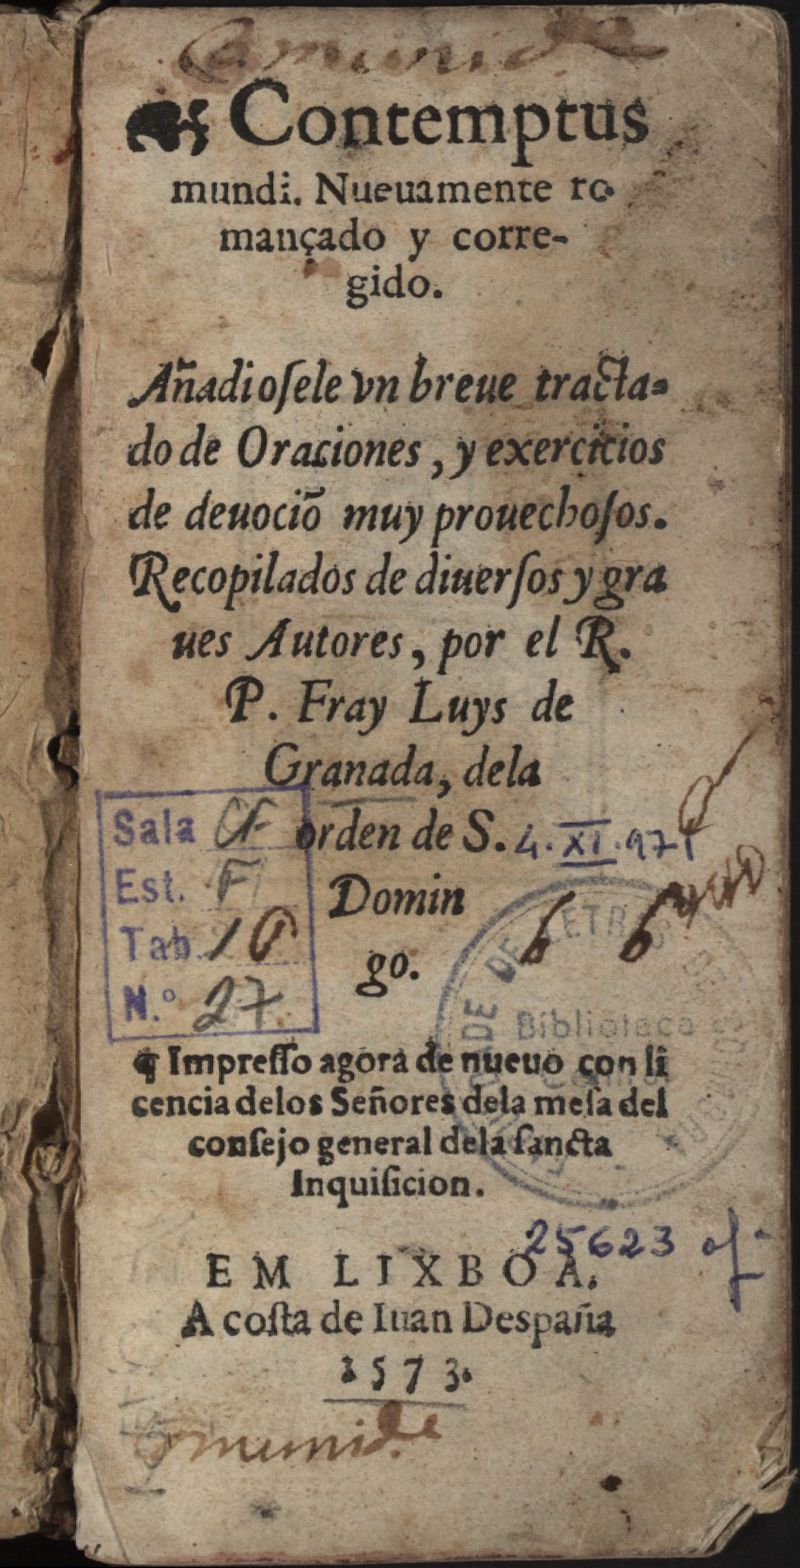 Contemptus
mundi. Nueuamente ro
mançado y corre-
gido.
Añadiosele vn breue tracta-
do de Oraciones, y exercicios
de deuociõ muy prouechosos.
Recopilados de diuersos y gra
ues Autores, por el R.
P. Fray Luys de
Granada, dela
orden de S.
Domin
go.
4.XI.971
Sala CF
Est. F
Tab. 10
N.º 27
DE LETRAS
Biblioteca
Impresso agora de nueuo con li
cencia delos Señores dela mesa del
consejo general dela sancta
Inquisicion.
25623
EM LIXBOA.
A costa de Iuan Despaña
1573.